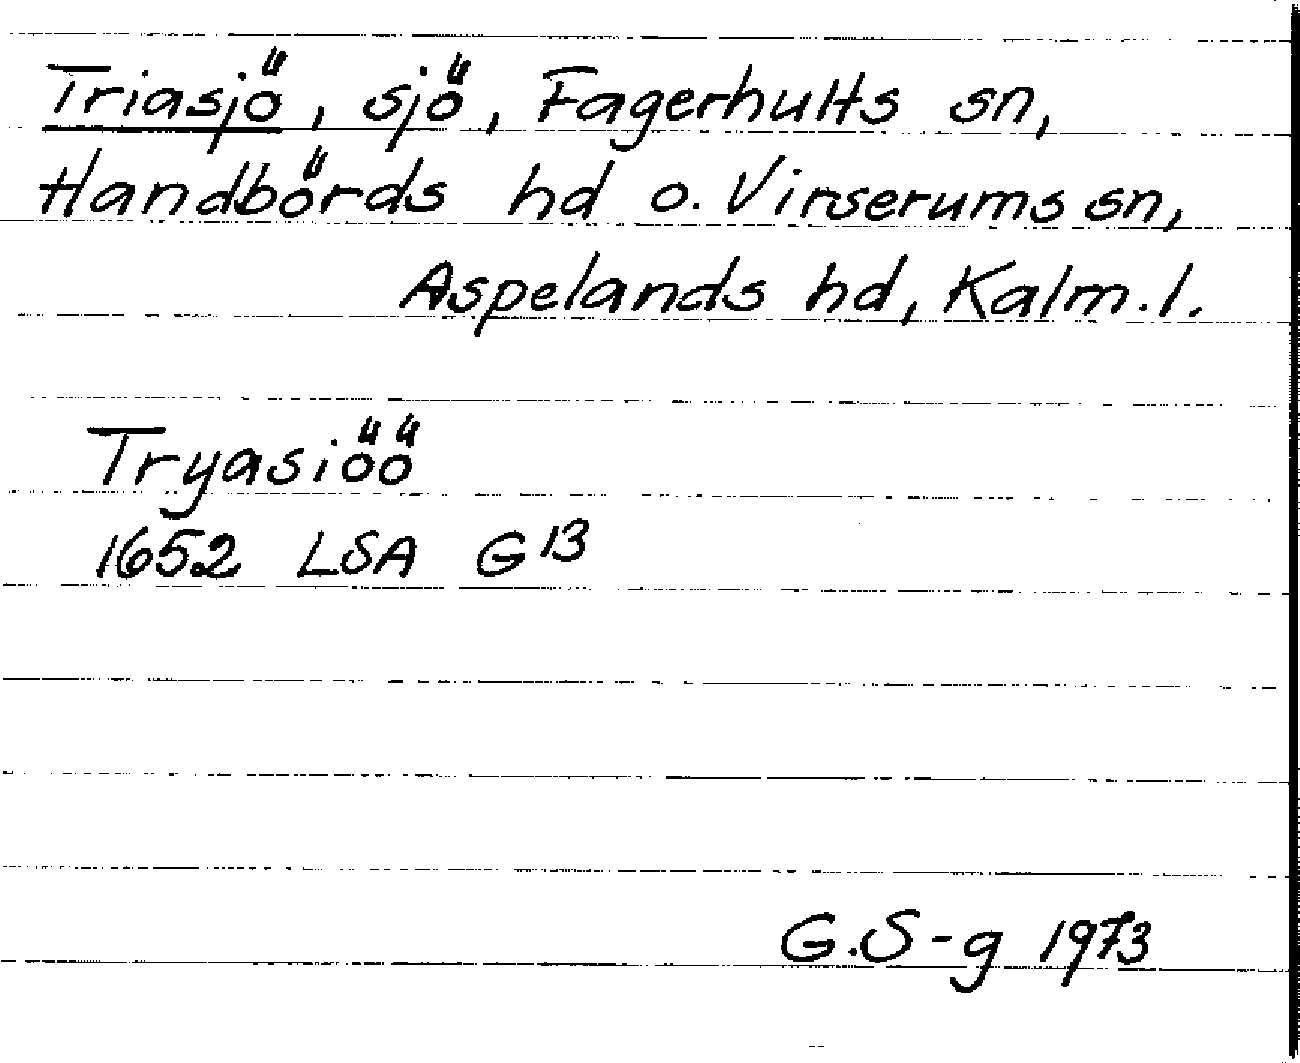 Triasjö, sjö, Fagerhults sn,
Handbörds hd o. Virserums sn,
Aspelands hd, Kalm.l.
Tryasiöö
1652 LSA G 13
G.S-g 1973